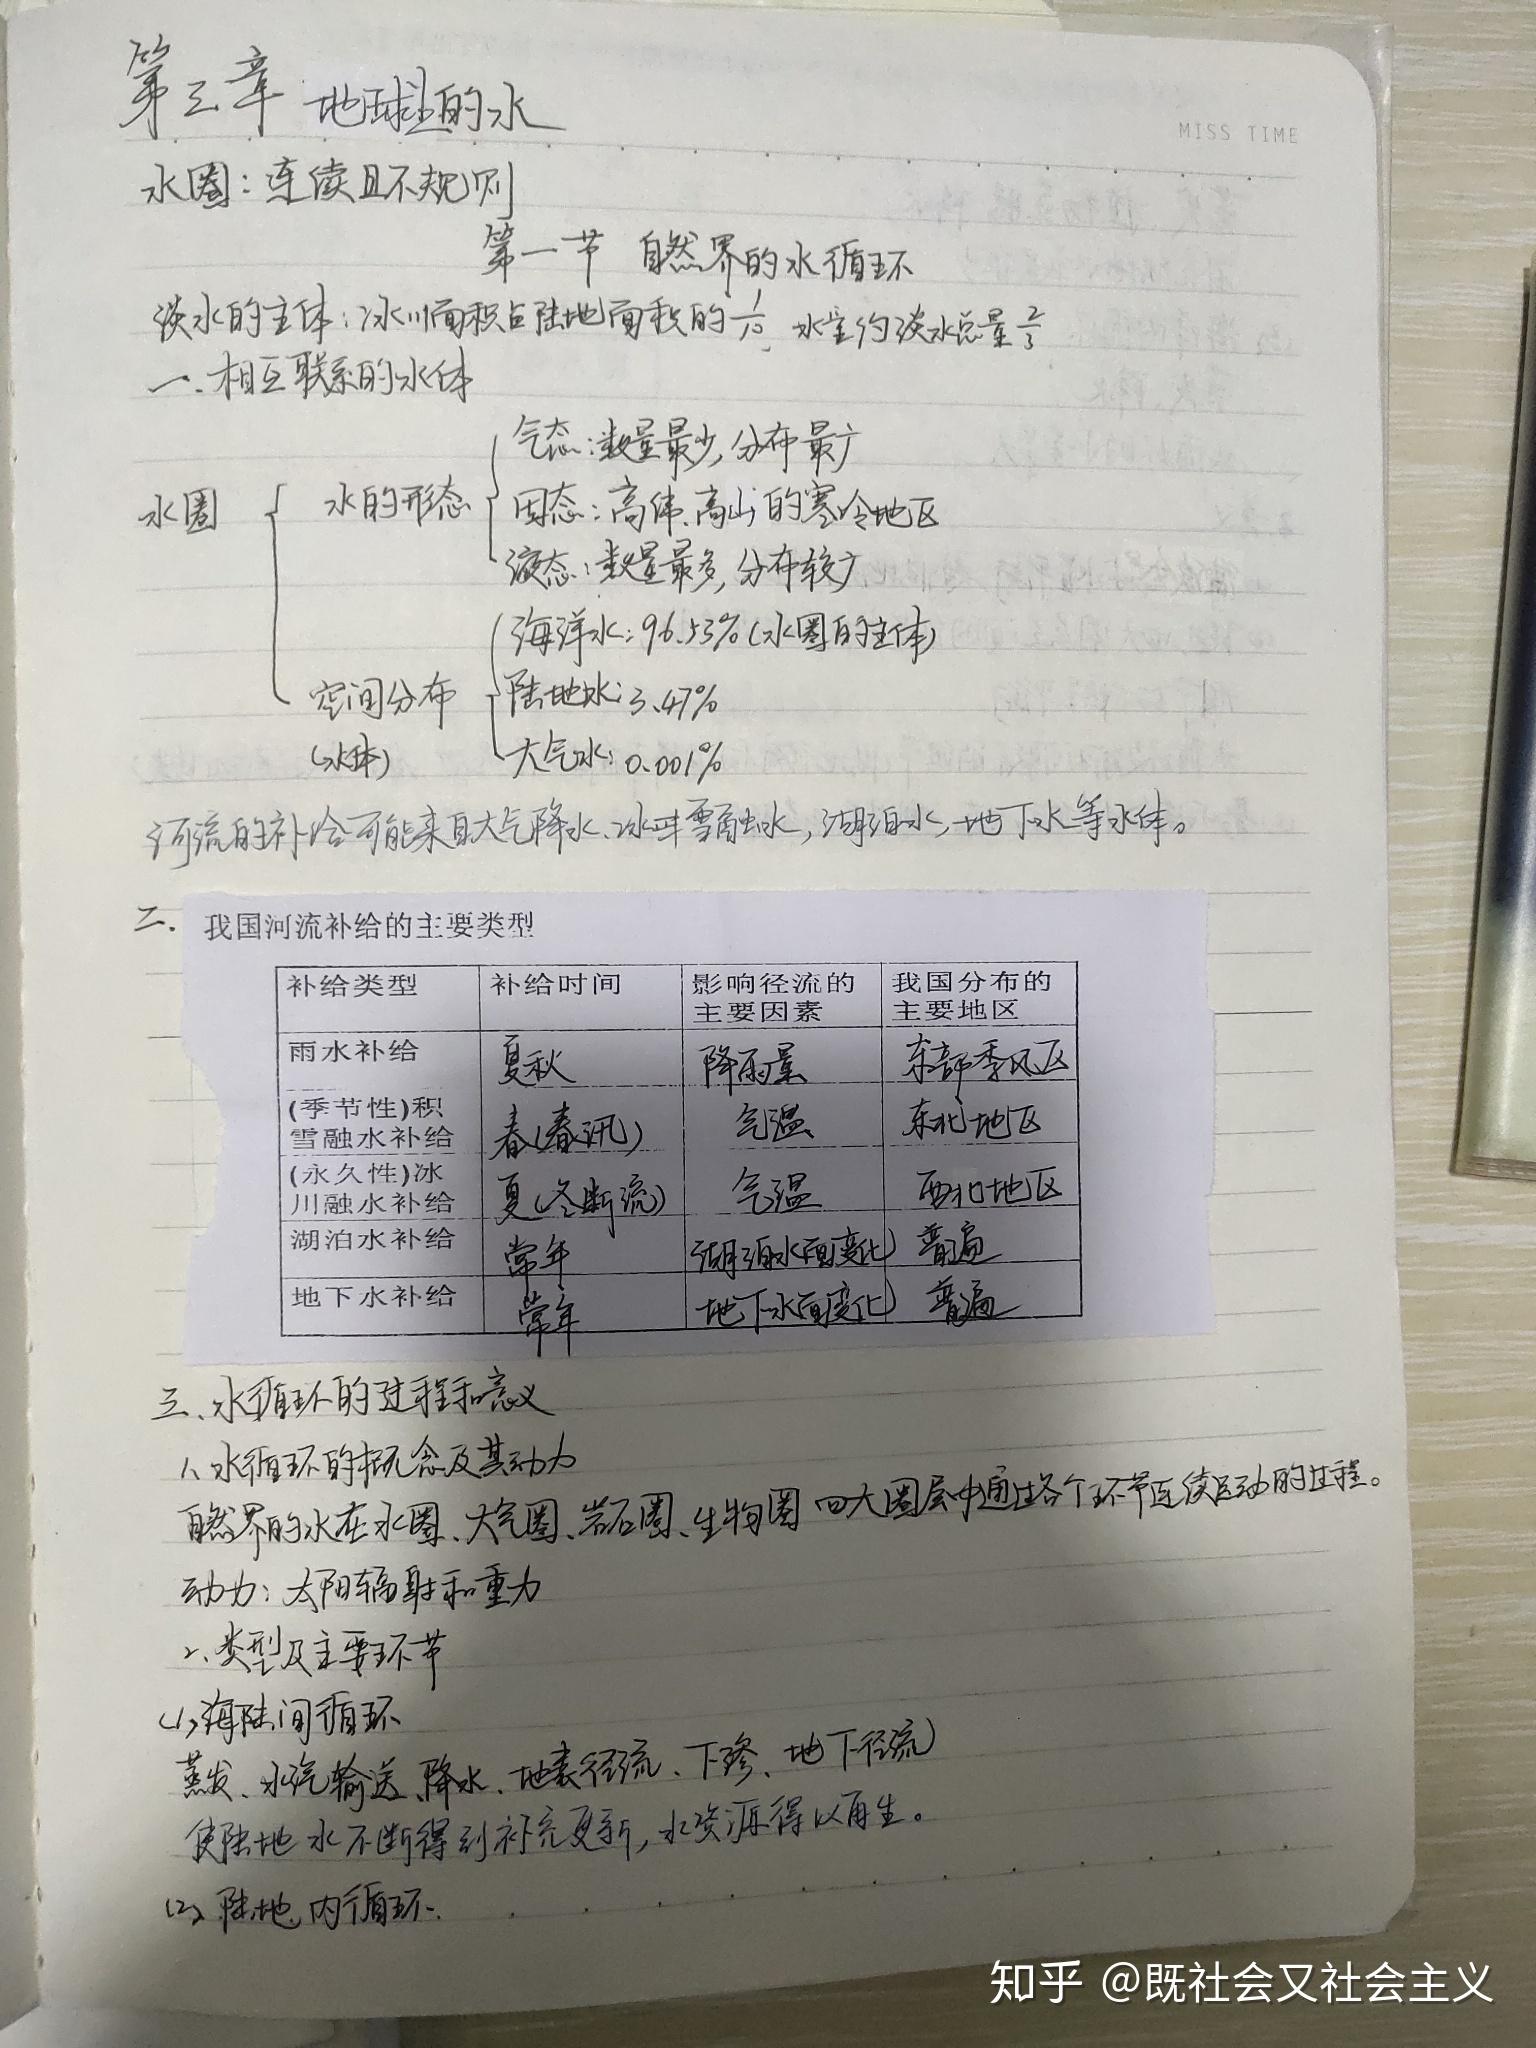 第三章 地球上的水
MISS TIME
水圈：连续且不规则
第一节 自然界的水循环
淡水的主体：冰川面积占陆地面积的1/10，水量约淡水总量2/3
一、相互联系的水体
水圈
水的形态
气态：数量最少，分布最广
固态：高纬、高山的寒冷地区
液态：数量最多，分布较广
空间分布
(水体)
海洋水：96.53%(水圈的主体)
陆地水：3.47%
大气水：0.001%
河流的补给可能来自大气降水、冰川雪融水，湖泊水，地下水等水体。
二. 我国河流补给的主要类型
补给类型 补给时间 影响径流的主要因素 我国分布的主要地区
雨水补给 夏秋 降雨量 东部季风区
(季节性)积雪融水补给 春(春汛) 气温 东北地区
(永久性)冰川融水补给 夏(冬断流) 气温 西北地区
湖泊水补给 常年 湖泊水面变化 普遍
地下水补给 常年 地下水面变化 普遍
三、水循环的过程和意义
1、水循环的概念及其动力
自然界的水在水圈、大气圈、岩石圈、生物圈四大圈层中通过各个环节连续运动的过程。
动力：太阳辐射和重力
2、类型及主要环节
(1)海陆间循环
蒸发、水汽输送、降水、地表径流、下渗、地下径流
使陆地水不断得到补充更新，水资源得以再生。
(2)陆地内循环.
知乎 @既社会又社会主义